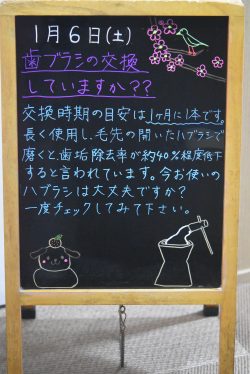 1月6日(土)
歯ブラシの交換
していますか??
交換時期の目安は1ヶ月に1本です。
長く使用し、毛先の開いたハブラシで
磨くと、歯垢除去率が約40%程度低下
すると言われています。今お使いの
ハブラシは大丈夫ですか?
一度チェックしてみて下さい。